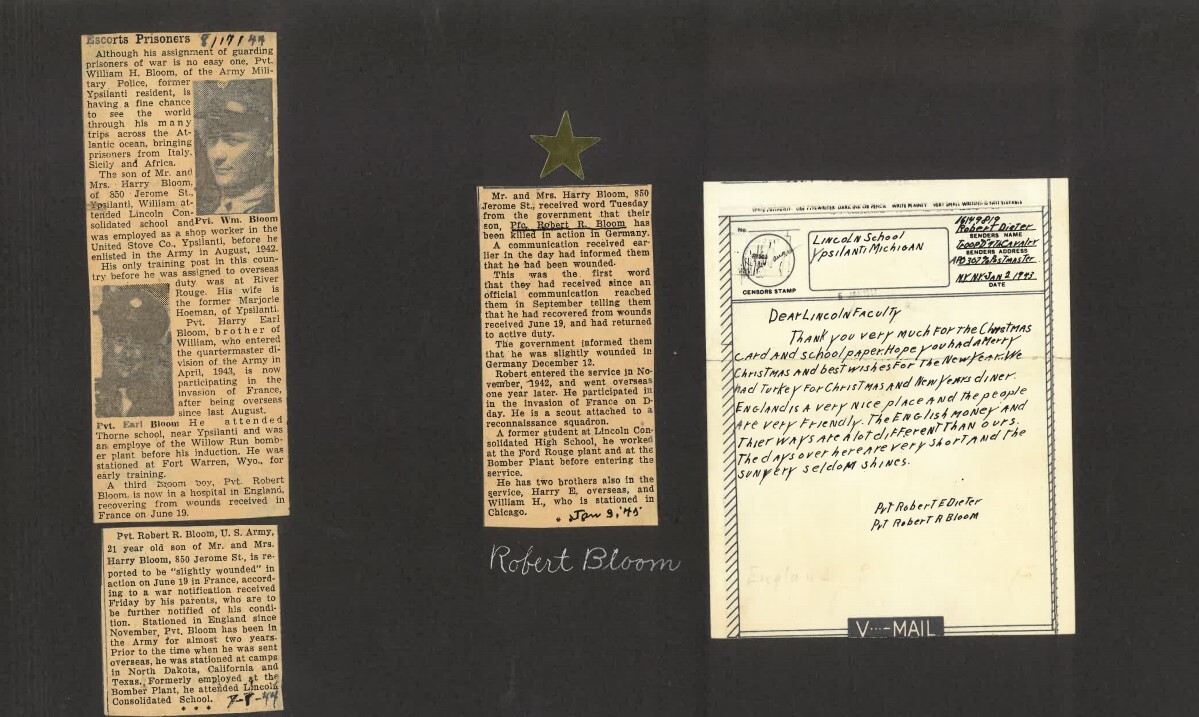 Escorts Prisoners 8/17/44
Although his assignment of guarding
prisoners of war is no easy one, Pvt.
William H. Bloom, of the Army Mili-
tary Police, former
Ypsilanti resident, is
having a fine chance
to see the world
through his many
trips across the At-
lantic ocean, bringing
prisoners from Italy,
Sicily and Africa.
The son of Mr. and
Mrs. Harry Bloom,
of 850 Jerome St.,
Ypsilanti, William at-
tended Lincoln Con-
solidated school and
Pvt. Wm. Bloom
was employed as a shop worker in the
United Stove Co., Ypsilanti, before he
enlisted in the Army in August, 1942.
His only training post in this coun-
try before he was assigned to overseas
duty was at River
Rouge. His wife is
the former Marjorie
Hoeman, of Ypsilanti.
Pvt. Harry Earl
Bloom, brother of
William, who entered
the quartermaster di-
vision of the Army in
April, 1943, is now
participating in the
invasion of France,
after being overseas
since last August.
Pvt. Earl Bloom He attended
Thorne school, near Ypsilanti and was
an employe of the Willow Run bomb-
er plant before his induction. He was
stationed at Fort Warren, Wyo., for
early training.
A third Bloom boy, Pvt. Robert
Bloom, is now in a hospital in England,
recovering from wounds received in
France on June 19.
Pvt. Robert R. Bloom, U. S. Army,
21 year old son of Mr. and Mrs.
Harry Bloom, 850 Jerome St., is re-
ported to be "slightly wounded" in
action on June 19 in France, accord-
ing to a war notification received
Friday by his parents, who are to
be further notified of his condi-
tion. Stationed in England since
November, Pvt. Bloom has been in
the Army for almost two years.
Prior to the time when he was sent
overseas, he was stationed at camps
in North Dakota, California and
Texas. Formerly employed at the
Bomber Plant, he attended Lincoln
Consolidated School. 7-8-44
Mr. and Mrs. Harry Bloom, 850
Jerome St., received word Tuesday
from the government that their
son, Pfc. Robert R. Bloom has
been killed in action in Germany.
A communication received ear-
lier in the day had informed them
that he had been wounded.
This was the first word
that they had received since an
official communication reached
them in September telling them
that he had recovered from wounds
received June 19, and had returned
to active duty.
The government informed them
that he was slightly wounded in
Germany December 12.
Robert entered the service in No-
vember, 1942, and went overseas
one year later. He participated in
the invasion of France on D-
day. He is a scout attached to a
reconnaissance squadron.
A former student at Lincoln Con-
solidated High School, he worked
at the Ford Rouge plant and at the
Bomber Plant before entering the
service.
He has two brothers also in the
service, Harry E, overseas, and
William H., who is stationed in
Chicago.
Jan 9, '45
Robert Bloom
No.
CENSORS STAMP
Lincoln School
Ypsilanti Michigan
16149819
Robert Dieter
SENDERS NAME
Troop D 9th Cavalry
SENDERS ADDRESS
APO 307 % Postmaster
NY NY Jan 2 1943
DATE
Dear Lincoln Faculty
Thank you very much for the Christmas
card and school paper. Hope you had a Merry
Christmas and best wishes for the New Year. We
had Turkey for Christmas and New Years diner.
England is a very nice place and the people
are very friendly. The English money and
thier ways are a lot different than ours.
The days over here are very short and the
sun very seldom shines.
Pvt Robert E Dieter
Pvt Robert R Bloom
England
V···-MAIL